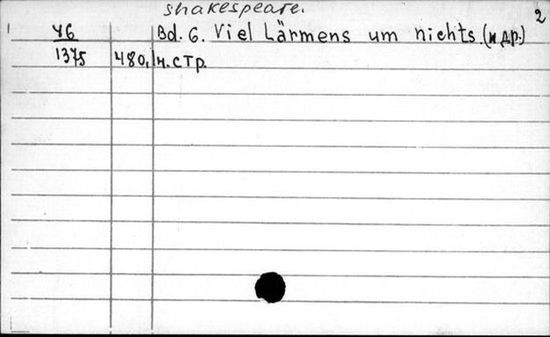 Shakespeare.
2
У6 Bd. 6. Viel Lärmens um nichts. (и др.)
1375 480, н. стр.